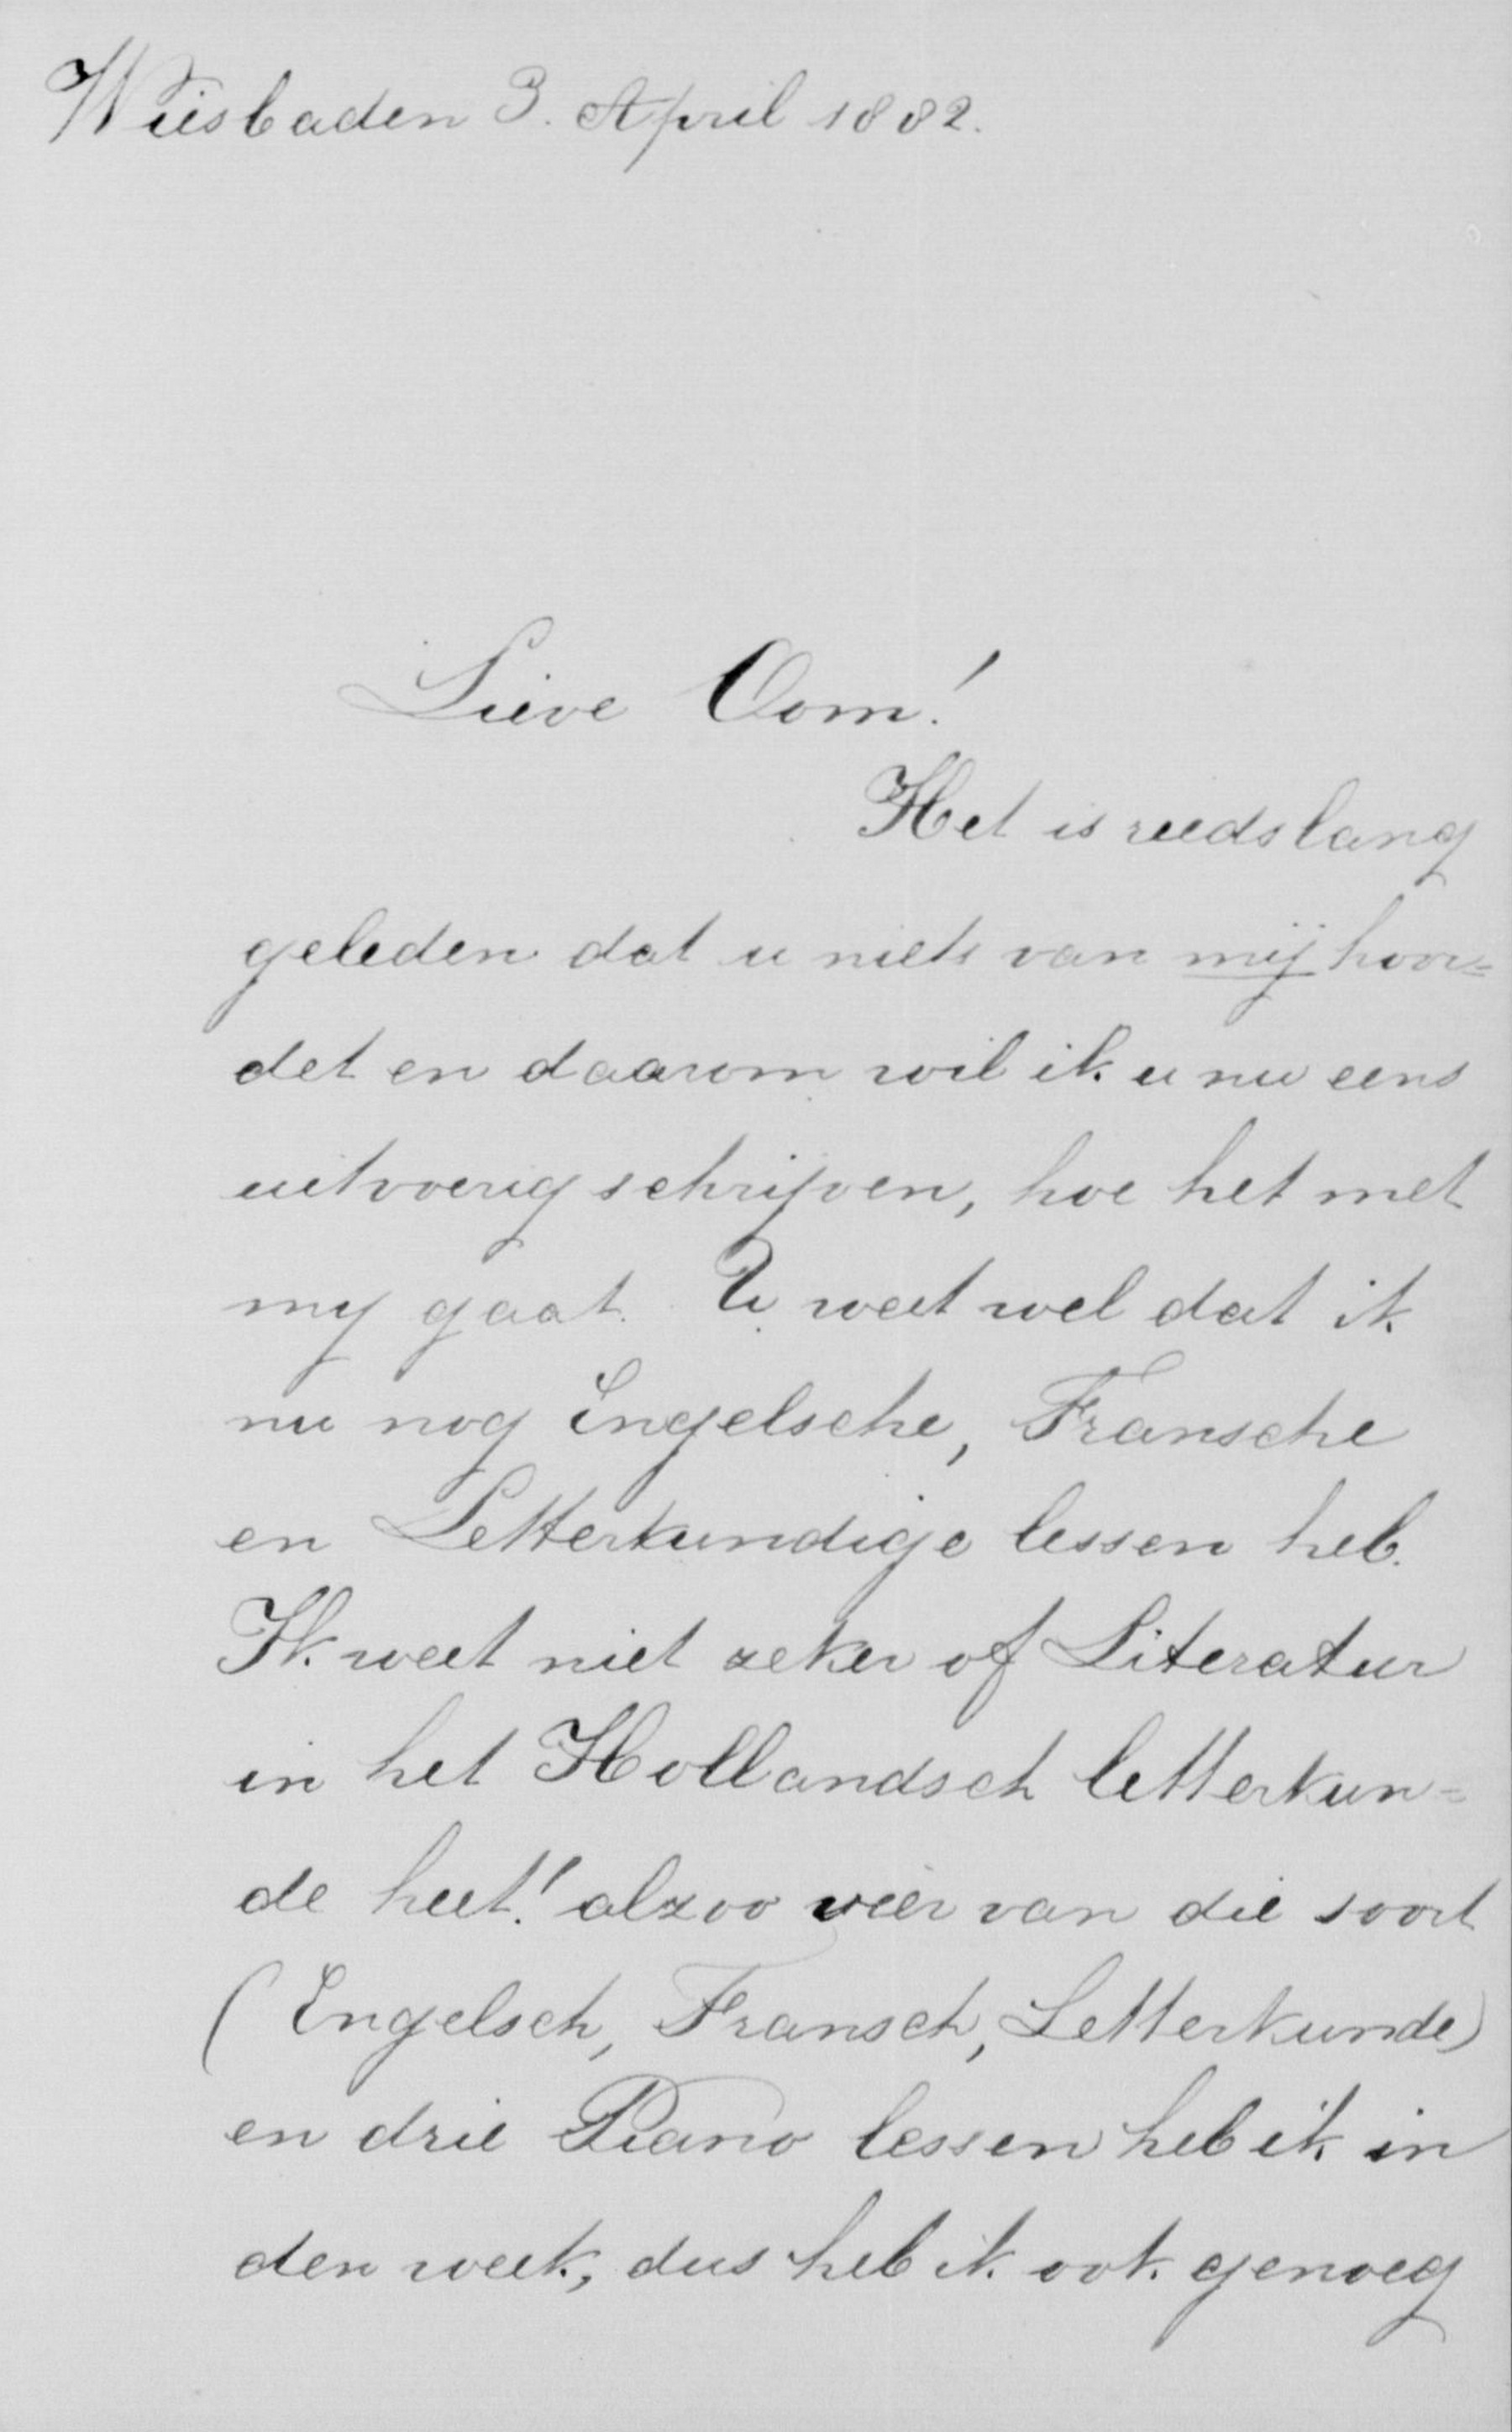 Wiesbaden 3. April 1882.
Lieve Oom!
Het is reeds lang
geleden dat u niets van mij hoor=
det en daarom wil ik u nu eens
uitvoerig schrijven, hoe het met
my gaat. U weet wel dat ik
nu nog Engelsche, Fransche
en Letterkundige lessen heb.
Ik weet niet zeker of Literatur
in het Hollandsch letterkun=
de heet! alzoo vier van die soort
(Engelsch, Fransch, Letterkunde)
en drie Piano lessen heb ik in
den week, dus heb ik ook genoeg